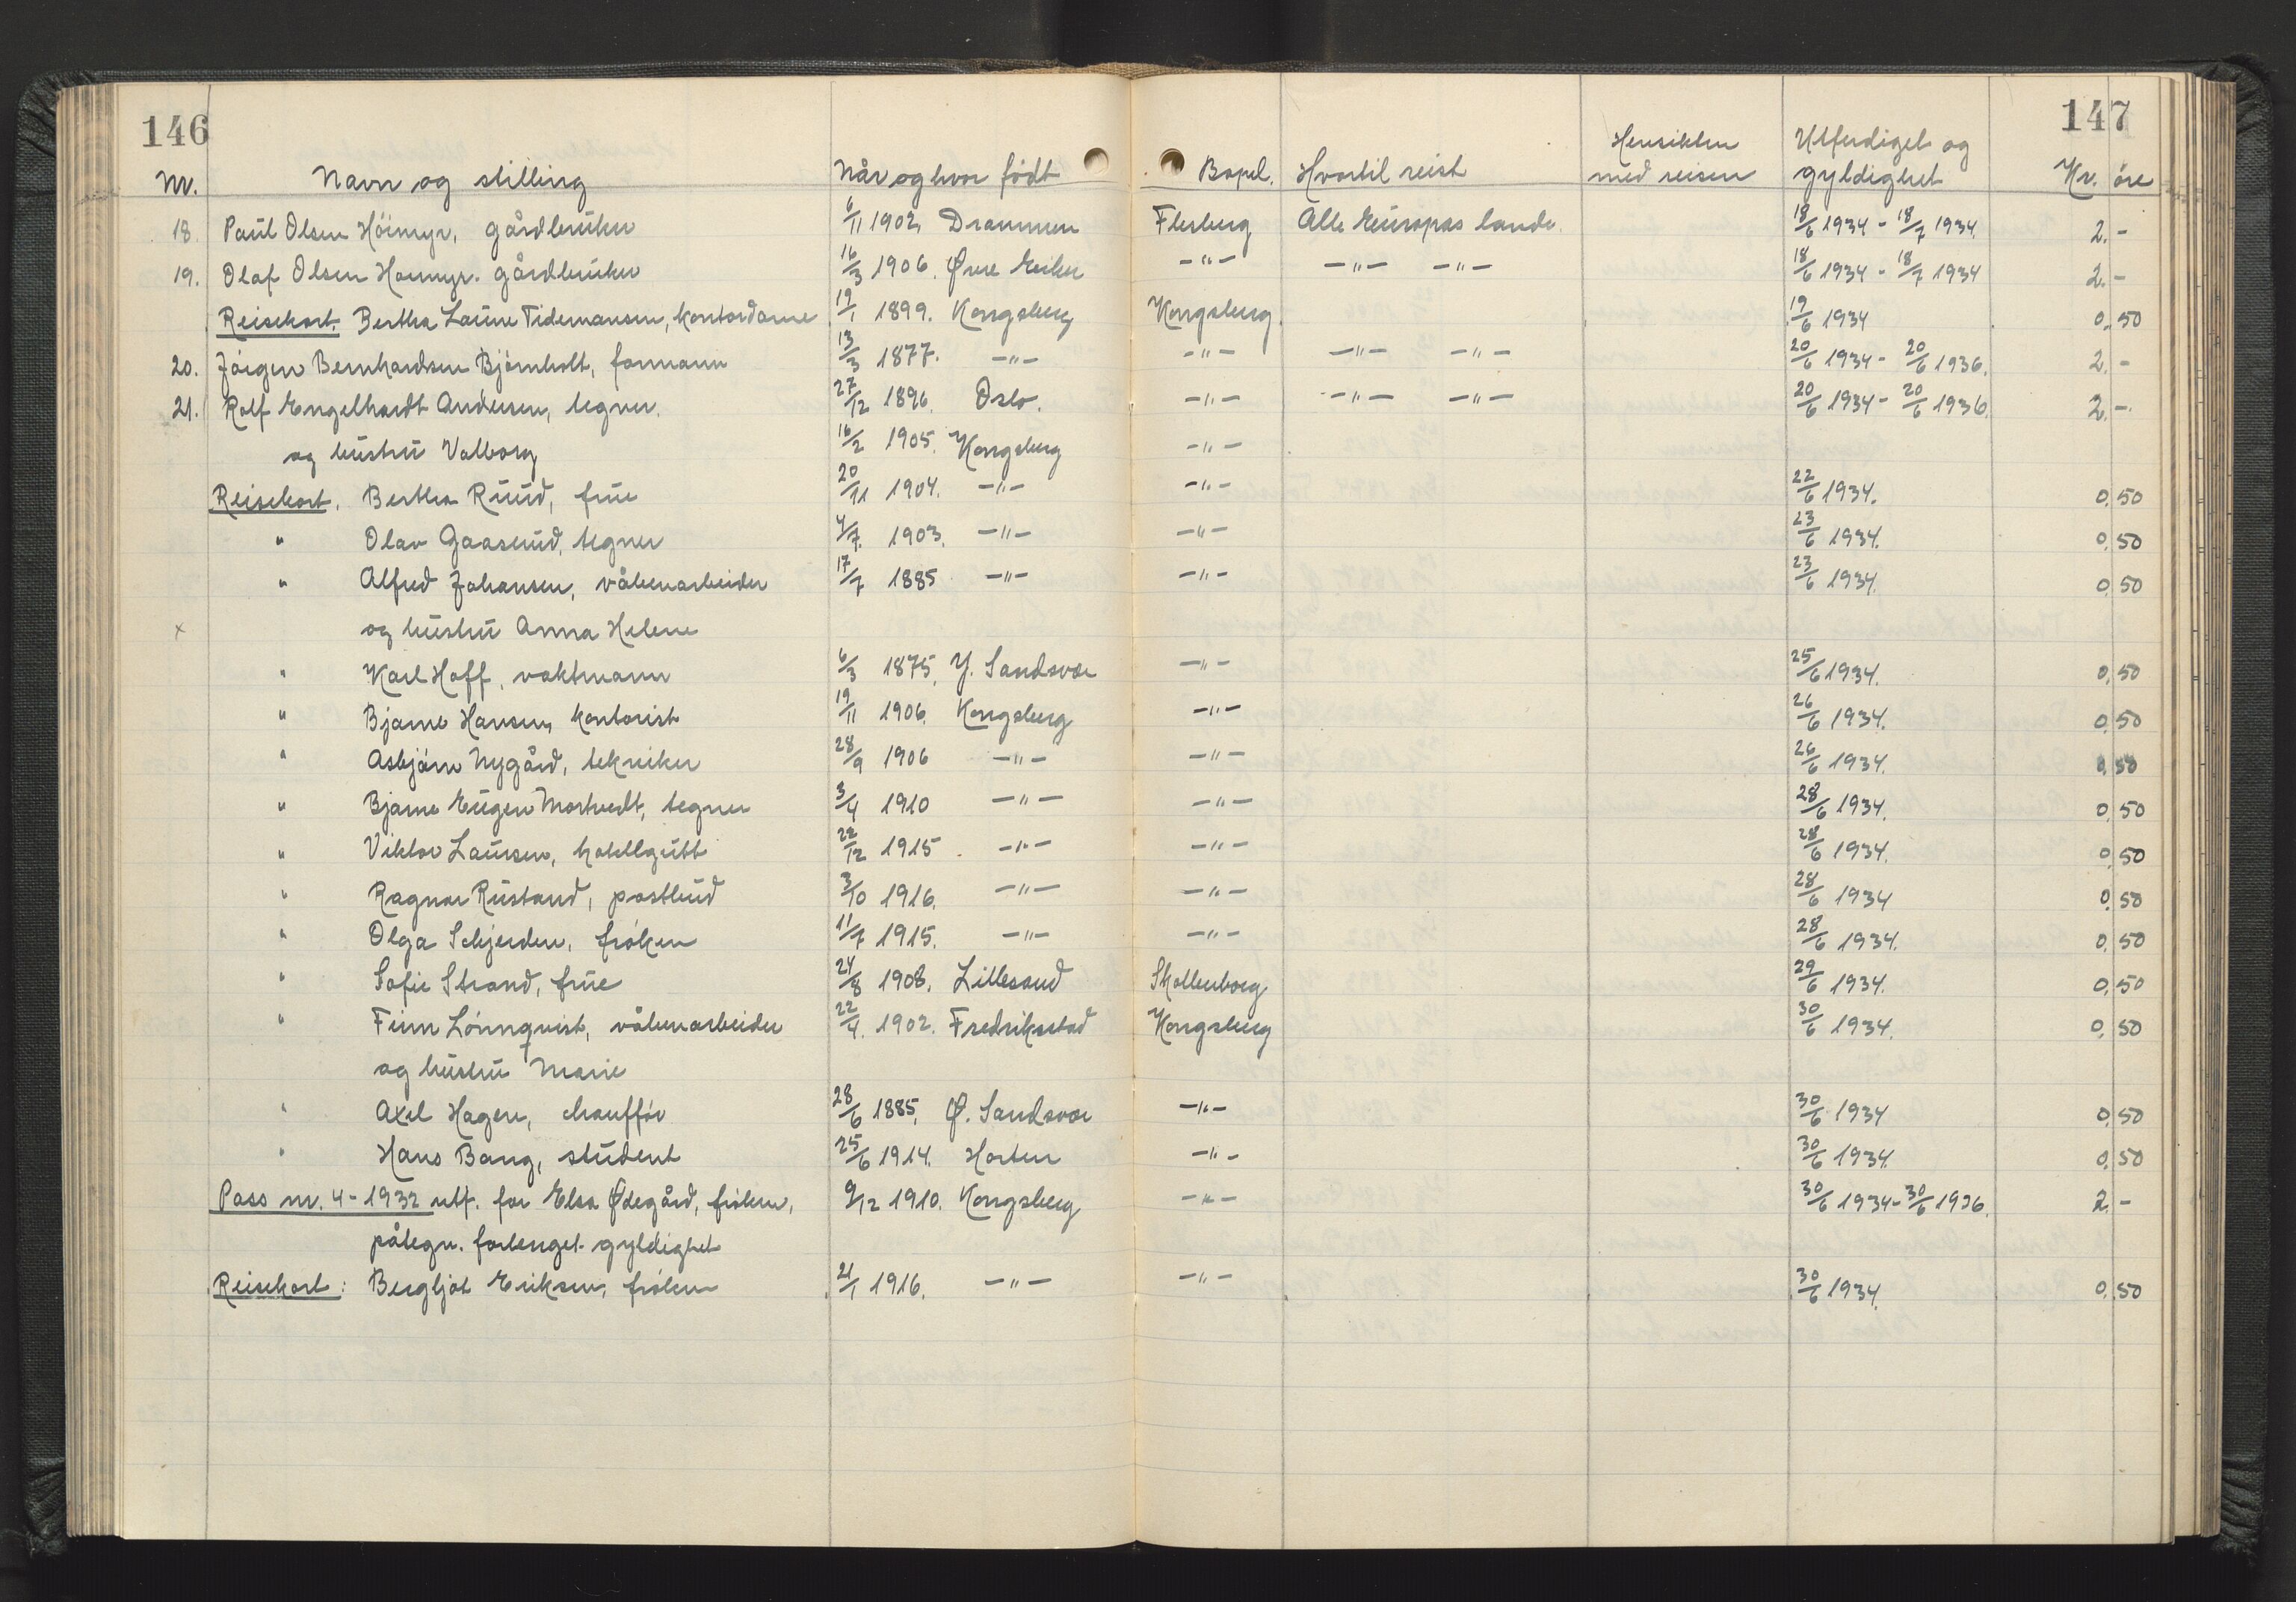 146
147
Nr. Navn og stilling Når og hvor född Bopel. Hvortil reist Hensikten med reisen Utferdiget og gyldighet Kr. öre
18. Paul Olsen Höimyr, gårdbruker 6/11 1902, Drammen Flesberg Alle Europas lande. 18/6 1934 - 18/7 1934. 2. -
19. Olaf Olsen Hoimyr. gårdbruker 16/3 1906. Øvre Eiker -"- -"- -"- 18/6 1934 - 18/7 1934 2. -
Reisekort. Bertha Laura Tidemansen, kontordame 19/1 1899. Kongsberg Kongsberg. 19/6 1934 0,50
20. Jörgen Bernhardsen Björnholt, formann 13/3 1877. -"- -"- -"- -"- 20/6 1934 - 20/6 1936. 2. -
21. Rolf Engelhardt Andersen, tegner. 27/12 1896. Oslo. -"- -"- -"- 20/6 1934 - 20/6 1936. 2. -
og hustru Valborg 16/2 1905. Kongsberg -"-
Reisekort. Bertha Ruud, frue 20/11 1904. -"- -"- 22/6 1934. 0,50
" Olav Gaaserud, tegner 4/7. 1903. -"- -"- 23/6 1934. 0,50
" Alfred Johansen, våbenarbeider 17/7 1885 -"- -"- 23/6 1934. 0,50
x og hustru Anna Helene
" Karl Hoff, vaktmann 6/3 1875, Y. Sandsvær -"- 25/6 1934. 0,50
" Bjarne Hansen, kontorist 19/11 1906. Kongsberg -"- 26/6 1934. 0,50
" Asbjörn Nygård, tekniker 28/9 1906 -"- -"- 26/6 1934. 0,50
" Bjarne Eugen Mortvedt, tegner 3/4 1910 -"- -"- 28/6 1934. 0,50
" Viktor Laursen, hotellgutt 22/12 1915. -"- -"- 28/6 1934. 0,50
" Ragnar Rustand, postbud 3/10 1916. -"- -"- 28/6 1934 0,50
" Olga Schjerden, fröken 11/7 1915. -"- -"- 28/6 1934. 0,50
" Sofie Strand, frue 24/8 1908. Lillesand Skollenborg 29/6 1934. 0,50
" Finn Lönnqvist, våbenarbeider 22/4. 1902. Fredrikstad Kongsberg 30/6 1934. 0,50
og hustru Marie
" Axel Hagen, chaufför 28/6 1885, Ø. Sandsvær -"- 30/6 1934 0,50
" Hans Bang, student 25/6 1914. Horten -"- 30/6 1934. 0,50
Pass nr. 4 - 1932 utf. for Elsa Ødegård, fröken, 9/12 1910. Kongsberg -"- 30/6 1934 - 30/6 1936. 2. -
påtegn. forlenget gyldighet
Reisekort: Bergljot Eriksen, fröken 21/1 1916. -"- -"- 30/6 1934. 0,50